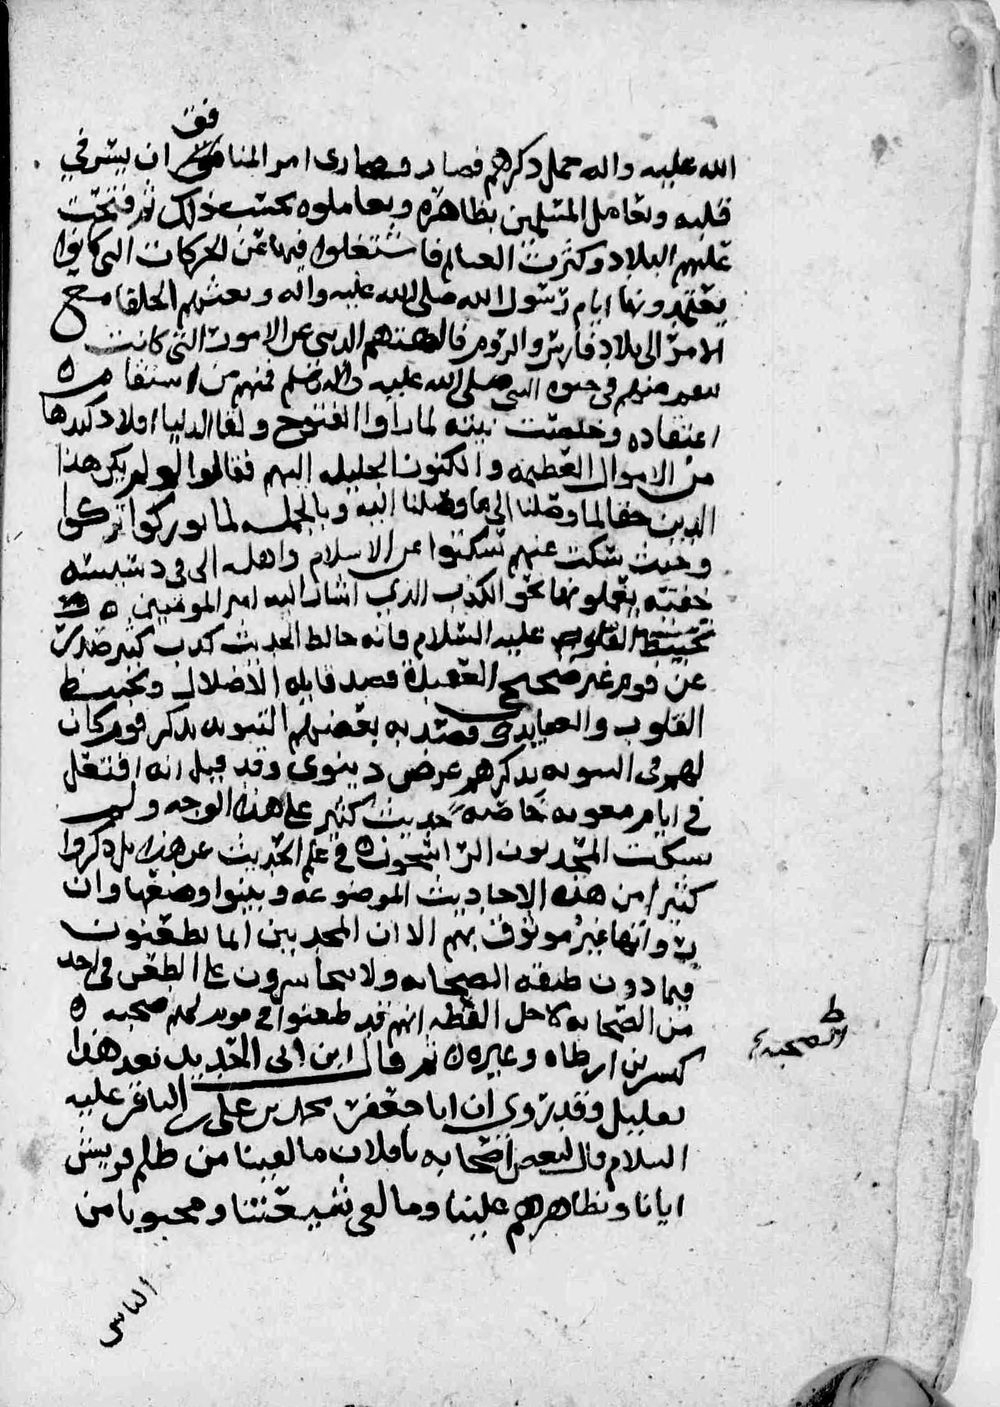 فق
الله عليه واله حمل ذكرهم فصار قصارى امر المنافق ان يسر في
قلبه ويعامل المسلمين بظاهره ويعاملوه بحسب ذلك ثم فتحت
عليهم البلاد وكثرت الغنايم فاشتغلوا فيها عن الحركات التي كانوا
يعتمدونها ايام رسول الله صلى الله عليه واله وبعثهم الخلفا مع
الامرا الى بلاد فارس والروم فالهتهم الدنيا عن الامور التي كانت
تنقم منهم في حيوة النبي صلى الله عليه واله وسلم فمنهم من استقام
اعتقاده وخلصت نيته لما راوا الفتوح والقا الدنيا افلاذ كبدها
من الاموال العظيمة والكنوز الجليلة اليهم فقالوا لو لم يكن هذا
الدين حقا لما وصلنا الى ما وصلنا اليه وبالجملة لما تركوا تركوا
وحيث سكت عنهم سكتوا عن الاسلام واهله الا في دسيسة
خفية يعملونها نحو الكذب الذي اشار اليه امير المومنين
عليه السلام فانه خالط الحديث كذب كثير صدر
عن قوم غير صحيحي العقيدة قصد قايله الاضلال وتخبيط
القلوب والعقايد وقصد به بعضهم التنويه بذكر قوم كان
لهم في التنويه بذكرهم غرض دينوي وقد قيل انه افتعل
في ايام معوية خاصة حديث كثير على هذا الوجه ولم
يسكت المحدثون الراسخون في علم الحديث عن هذا بل ذكروا
كثيرا من هذه الاحاديث الموضوعة وبينوا وضعها وان
وانها غير موثوق بهم الا ان المحدثين انما يطعنون
فيما دون طبقة الصحابة ولا يتجاسرون على الطعن في احد
من الصحابة لاجل لفظة انهم قد طعنوا في قوم لهم صحبة
كبسر بن ارطاه وغيره ثم قال ابن ابي الحديد بعد هذا
بقليل وقد روي ان ابا جعفر محمد بن علي الباقر عليه
السلام قال لبعض اصحابه يا فلان ما لقينا من ظلم قريش
ايانا وتظاهرهم علينا وما لقي شيعتنا ومحبونا من
الناس